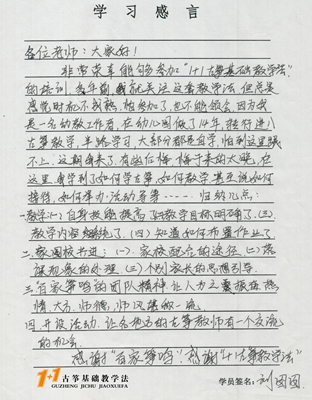 学习感言
各位老师:大家好!
非常荣幸能够参加“1+1古筝基础教学法”
的培训,多年前我就关注这套教学法,但总是
感觉时机不成熟,怕参加了,也不能领会,因为我
是一名幼教工作者,在幼儿园做了14年,转行进入
古筝教学,半路学习,大部分都是自学,怕到这里跟
不上,这期来了,有些后悔,悔于来的太晚,在
这里,我学到了如何学古筝,如何教学,甚至说如何
接待,如何举办活动等等……归纳几点:
一.教学(一)自身技能提高(二)教学目标明确了,(三)
教学内容系统了,(四)知道如何布置作业了
二.家园校共进:(一).家校配合的途径(二)落
课现象的处理(三)个别家长的思想引导.
三.百家筝鸣的团队精神让人为之震撼在热
情大方.师德,师风堪称一流
四.开设活动.让各地方的古筝教师有一个交流
的机会.
感谢“百家筝鸣”感谢“1+1古筝教学法”
1+1 古筝基础教学法
GUZHENG JICHU JIAOXUEFA
学员签名:刘园园